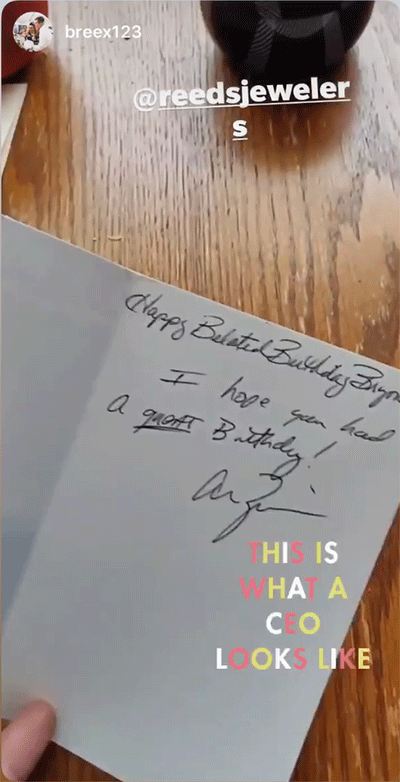 breex123
@reedsjeweler
s
Happy Belated Birthday
I hope you had
a great Birthday!
THIS IS
WHAT A
CEO
LOOKS LIKE